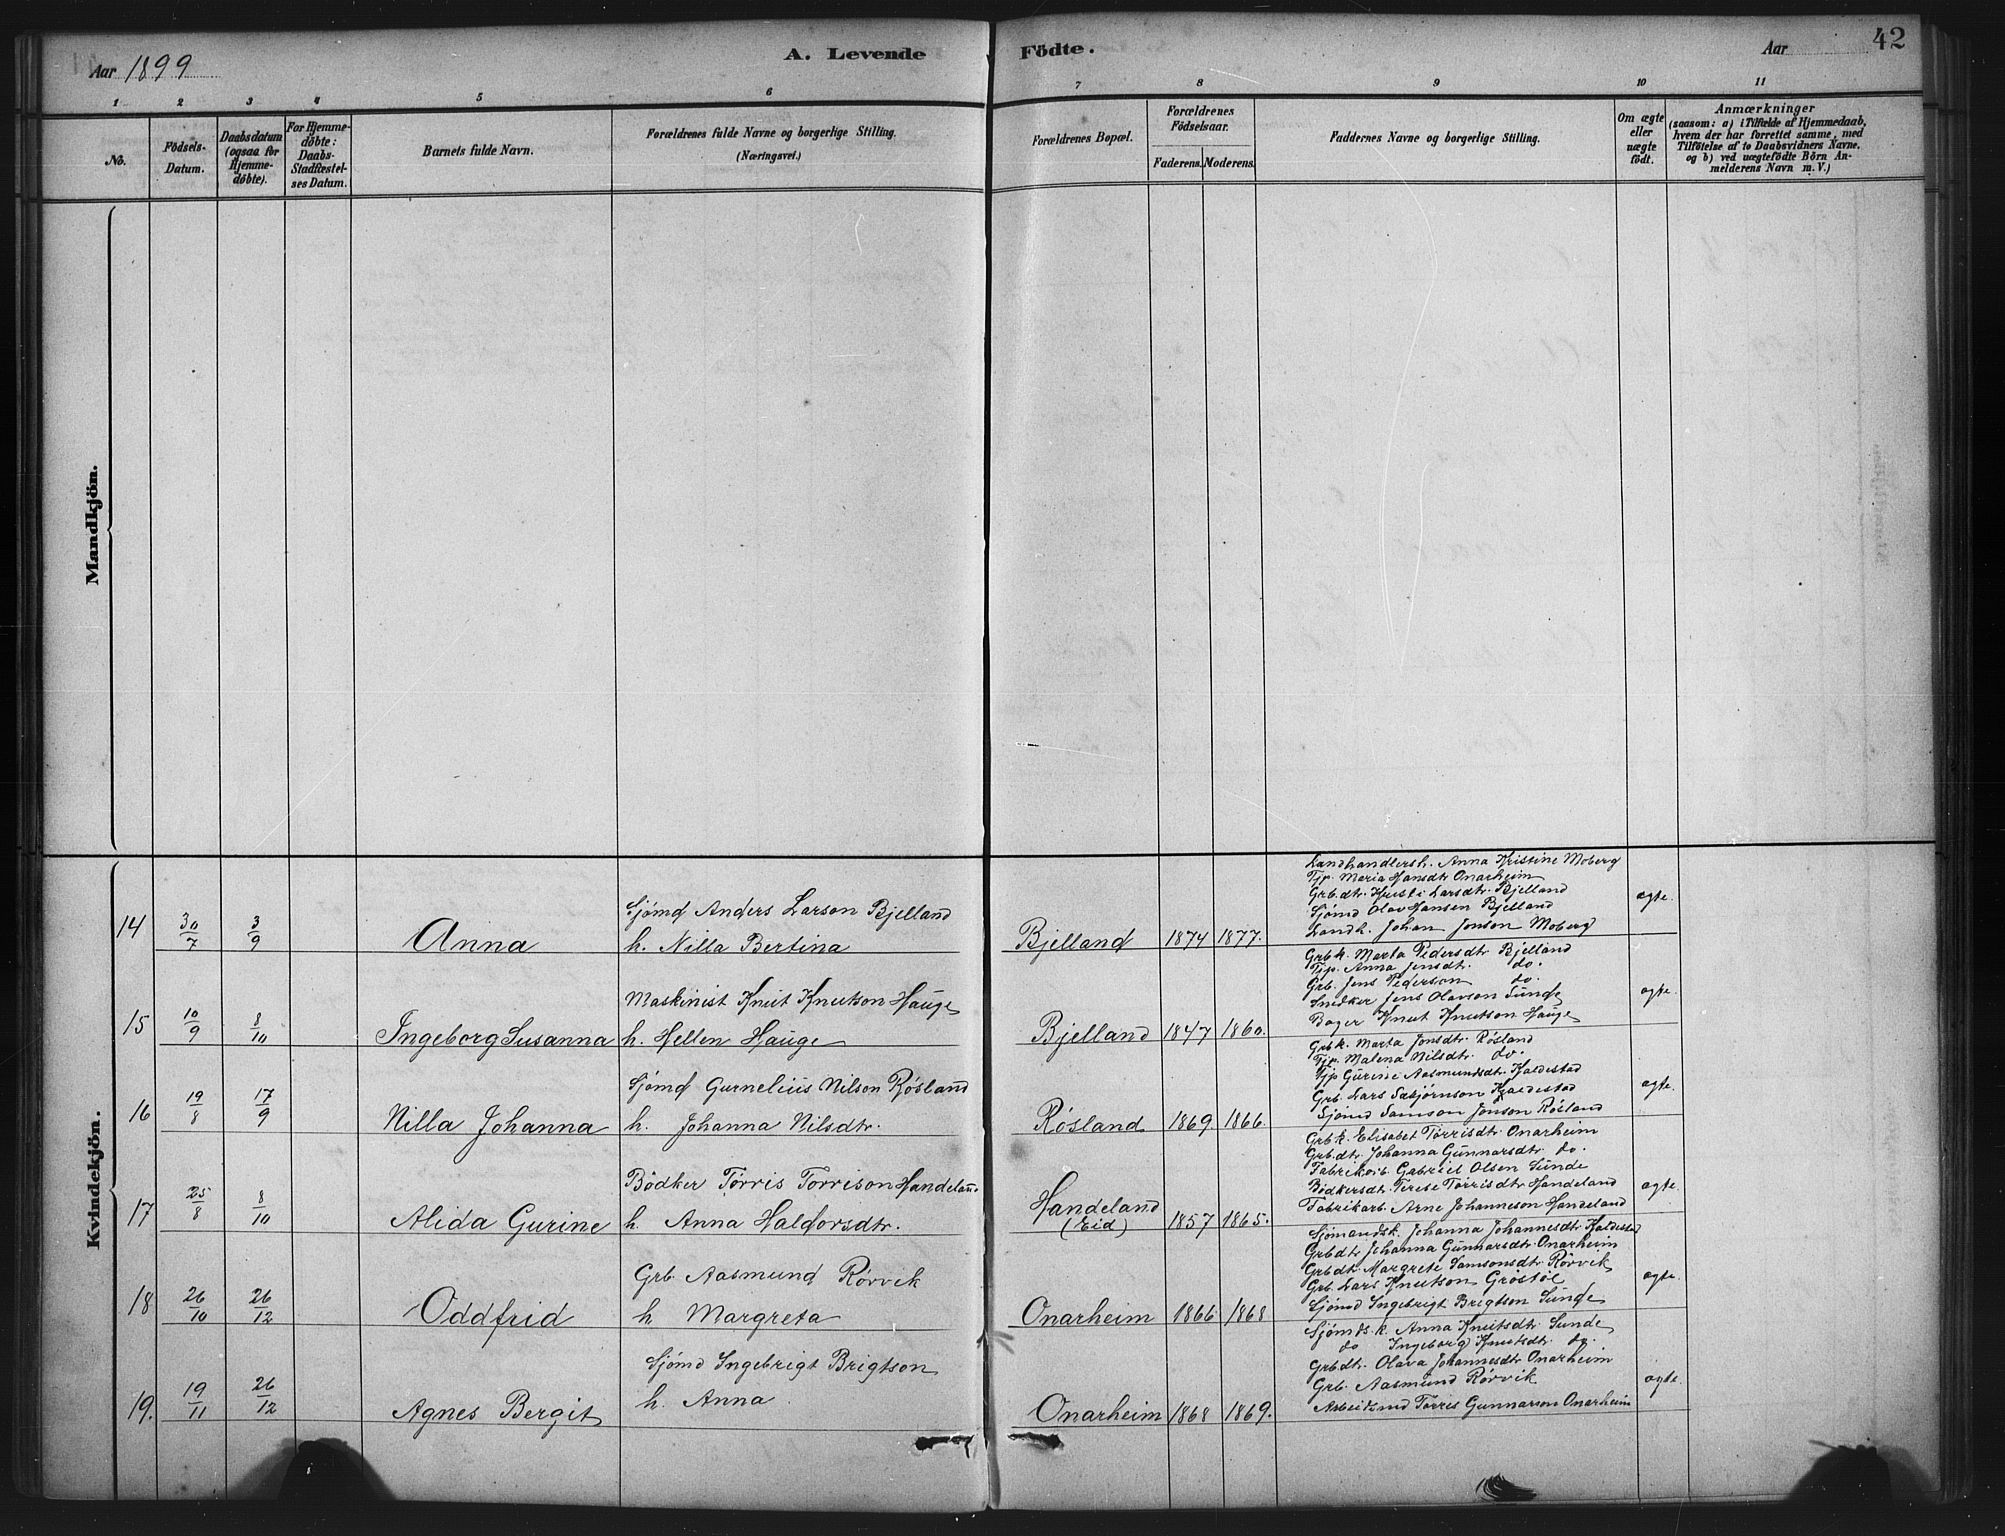 Aar 1899
A. Levende Födte.
Aar
42
1 2 3 4 5 6 7 8 9 10 11
No.
Födsels-Datum.
Daabsdatum (ogsaa for Hjemmedöbte).
For Hjemmedöbte: Daabs-Stadfæstelses Datum.
Barnets fulde Navn.
Forældrenes fulde Navne og borgerlige Stilling. (Næringsvei.)
Forældrenes Bopæl.
Forældrenes Födselsaar.
Faderens. Moderens.
Faddernes Navne og borgerlige Stilling.
Om ægte eller uægte födt.
Anmærkninger
(saasom: a) i Tilfælde af Hjemmedaab, hvem der har forrettet samme, med Tilföielse af to Daabsvidners Navne, og b) ved uægtefödte Börn Anmelderens Navn m. V.)
Mandkjön.
Kvindekjön.
14 30/7 3/9 Anna
Sjömd Anders Larson Bjelland
h. Nilla Bertina
Bjelland 1874 1877.
Landhandlersh. Anna Kristine Moberg
Tjp. Maria Hansdtr Onarheim
Grb.dtr. Kristi Larsdtr. Bjelland
Sjömd Olav Hansen Bjelland
Landh. Johan Jonson Moberg
ægte.
15 10/9 8/10 Ingeborg Susanna
Maskinist Knut Knutson Hauge
h. Hellen Hauge
Bjelland 1847 1860.
Grb k. Marta Pedersdtr Bjelland
Tjp. Anna Jensdtr. do.
Grb. Jens Pederson do.
Snedker Jens Olavson Sunde
Bager Knut Knutson Hauge
ægte.
16 19/8 17/9 Nilla Johanna
Sjömd Gurnelius Nilson Røsland
h. Johanna Nilsdtr.
Røsland 1869. 1866.
Grb k. Marta Jonsdtr. Røsland
Tjp. Malena Nilsdtr. do.
Tjp Gurine Aasmundsdtr. Kaldestad
Grb. Lars Sæbjörnson Kaldestad
Sjömd Samson Jonson Røsland
ægte.
17 25/8 8/10 Alida Gurine
Bödker Törris Torrison Handeland
h. Anna Haldorsdtr.
Handeland (Eid) 1857 1865.
Grb k. Elisabet Törrisdtr. Onarheim
Grb.dtr. Johanna Gunnarsdtr. do.
Fabrikarb. Gabriel Olsen Sunde
Bödkersdtr. Terese Törrisdtr. Handeland
Fabrikarb. Arne Johanneson Handeland
ægte.
18 26/10 26/12 Oddfrid
Grb. Aasmund Rörvik
h Margreta
Onarheim 1866 1868
Sjömandsk. Johanna Johannesdtr. Kaldestad
Grbdtr. Johanna Gunnarsdtr. Onarheim
Grbdtr. Margrete Samsonsdtr. Rörvik
Grb. Lars Knutson
Sjömd Ingebrigt Brigtson Sunde
ægte.
19. 19/11 26/12 Agnes Bergit
Sjömd Ingebrigt Brigtson
h. Anna
Onarheim 1868 1869.
Sjömds k. Anna Knutsdtr. Sunde
do Ingeborg Knutsdtr. do.
Grb.dtr. Olava Johannesdtr Onarheim
Grb. Aasmund Rörvik
Arbeidsmd Törres Gunnarson Onarheim
ægte.